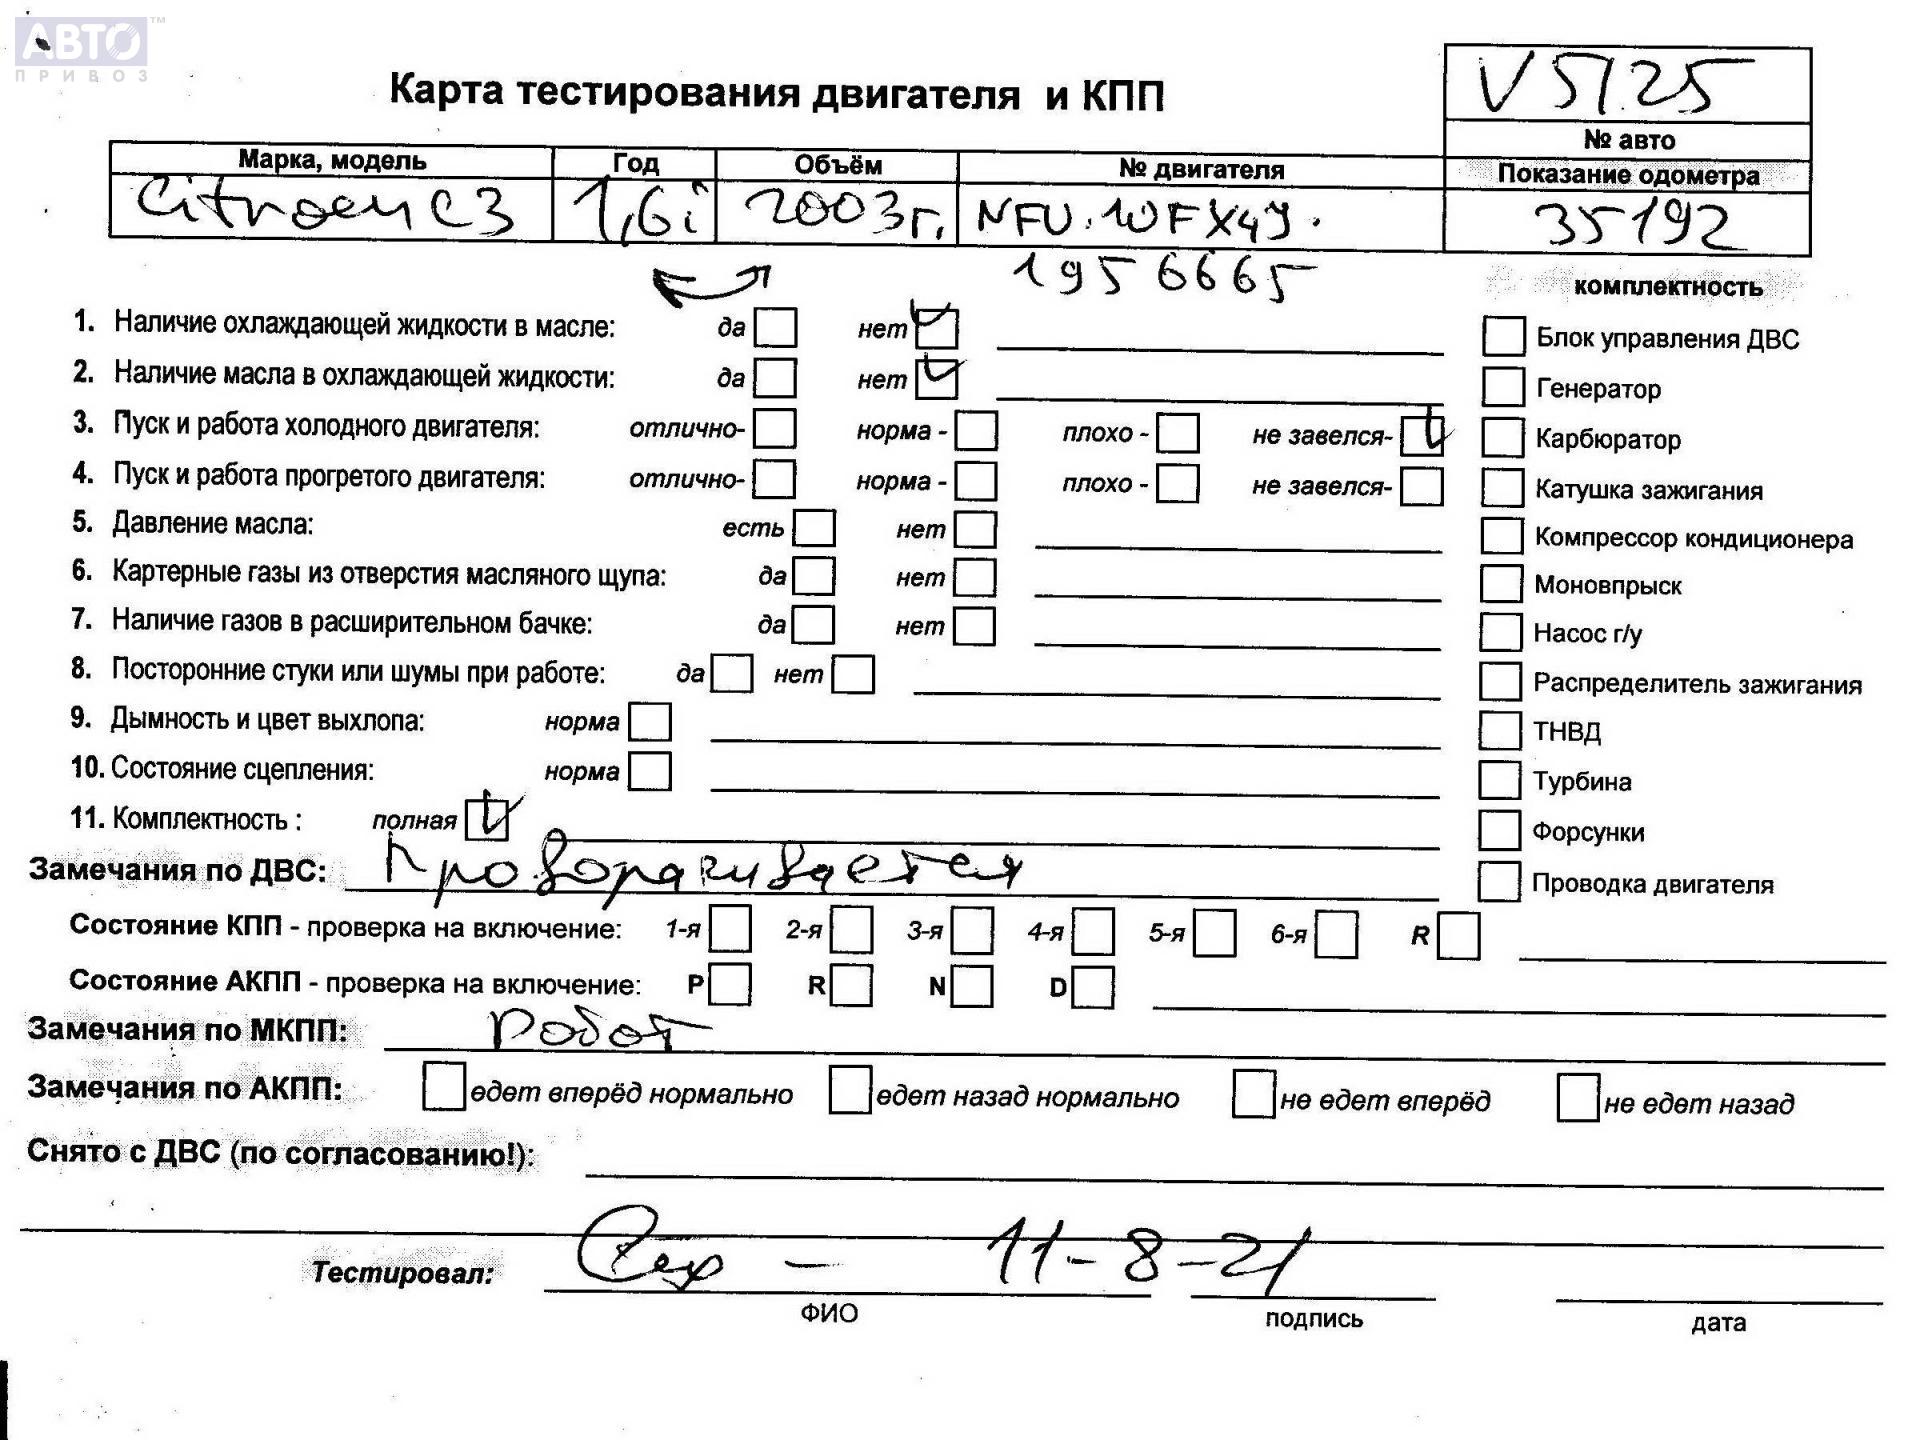 АВТО™
ПРИВОЗ
Карта тестирования двигателя и КПП
V5725
№ авто
Марка, модель Год Объём № двигателя Показание одометра
Citroen C3 1,6i 2003г. NFU.10FX4Y. 35192
1956665
комплектность
1. Наличие охлаждающей жидкости в масле: да нет Блок управления ДВС
2. Наличие масла в охлаждающей жидкости: да нет Генератор
3. Пуск и работа холодного двигателя: отлично- норма - плохо - не завелся- Карбюратор
4. Пуск и работа прогретого двигателя: отлично- норма - плохо - не завелся- Катушка зажигания
5. Давление масла: есть нет Компрессор кондиционера
6. Картерные газы из отверстия масляного щупа: да нет Моновпрыск
7. Наличие газов в расширительном бачке: да нет Насос г/у
8. Посторонние стуки или шумы при работе: да нет Распределитель зажигания
9. Дымность и цвет выхлопа: норма ТНВД
10. Состояние сцепления: норма Турбина
11. Комплектность : полная Форсунки
Замечания по ДВС: Проворачивается Проводка двигателя
Состояние КПП - проверка на включение: 1-я 2-я 3-я 4-я 5-я 6-я R
Состояние АКПП - проверка на включение: P R N D
Замечания по МКПП: Робот
Замечания по АКПП: едет вперёд нормально едет назад нормально не едет вперёд не едет назад
Снято с ДВС (по согласованию!):
Тестировал: - 11-8-21
ФИО подпись дата